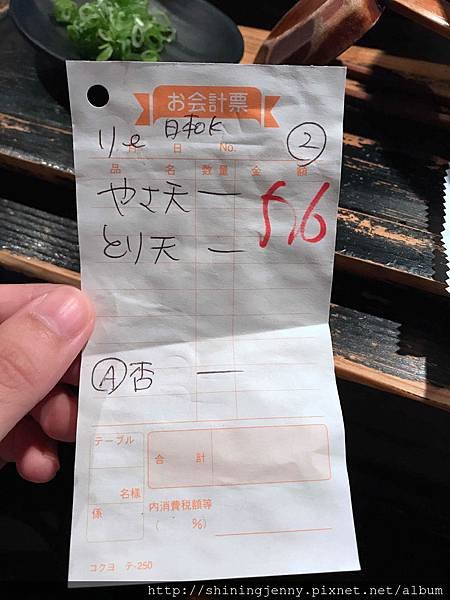 お会計票
月 日 No.
②
品 名 数量 金 額
やさ天 一
とり天 一
Ⓐ否 一
テーブル
名様
係
合 計
内消費税額等
( %)
コクヨ テ-250
http://shiningjenny.pixnet.net/album